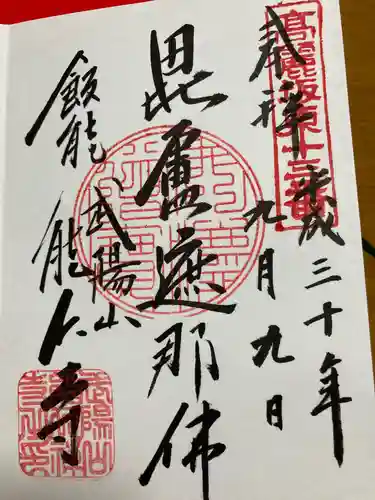 高麗坂東三十三番
奉拝
平成三十年
九月九日
毘盧遮那佛
飯能 武陽山
能仁寺